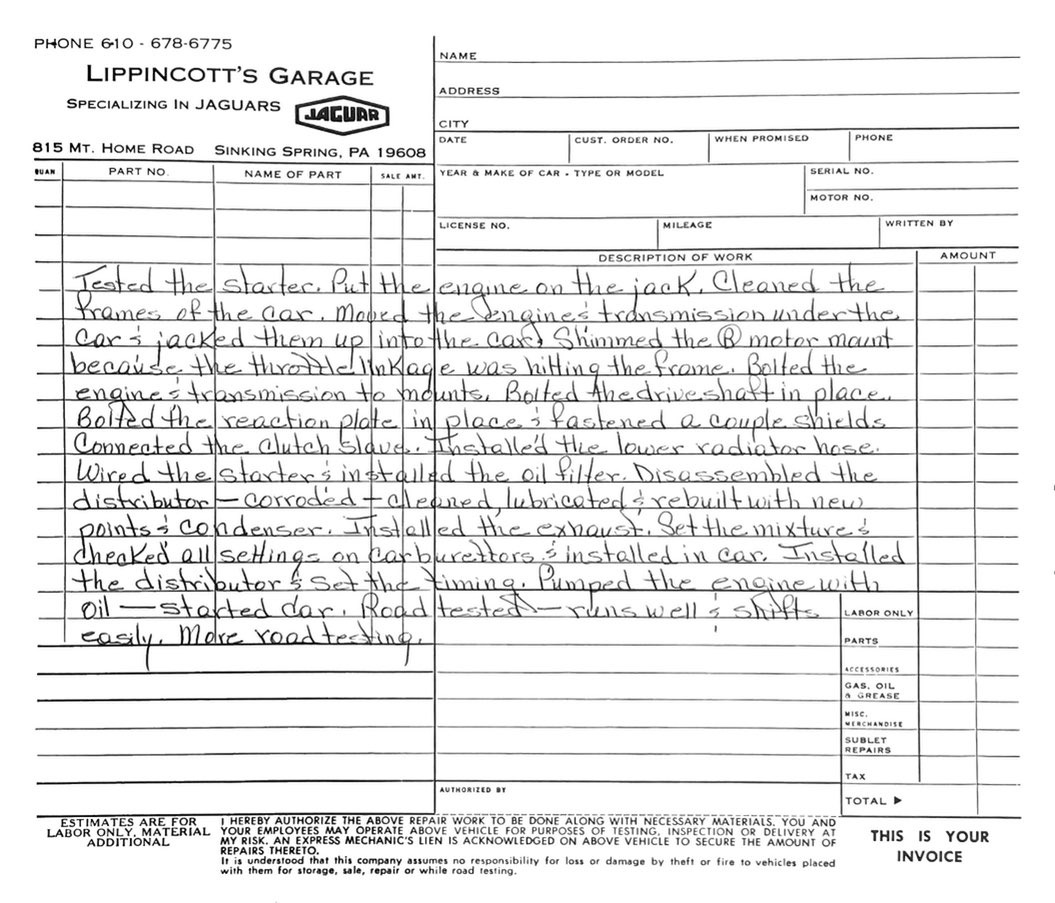 PHONE 610 - 678-6775
LIPPINCOTT'S GARAGE
SPECIALIZING IN JAGUARS
JAGUAR
815 MT. HOME ROAD SINKING SPRING, PA 19608
NAME
ADDRESS
CITY
DATE CUST. ORDER NO. WHEN PROMISED PHONE
QUAN PART NO. NAME OF PART SALE AMT.
YEAR & MAKE OF CAR - TYPE OR MODEL SERIAL NO.
MOTOR NO.
LICENSE NO. MILEAGE WRITTEN BY
DESCRIPTION OF WORK AMOUNT
Tested the starter. Put the engine on the jack. Cleaned the
frames of the car. Moved the engine & transmission under the
car & jacked them up into the car. Shimmed the Ⓡ motor mount
because the throttle linkage was hitting the frame. Bolted the
engine & transmission to mounts. Bolted the driveshaft in place.
Bolted the reaction plate in place & fastened a couple shields
Connected the clutch slave. Installed the lower radiator hose.
Wired the starter & installed the oil filter. Disassembled the
distributor — corroded — cleaned, lubricated & rebuilt with new
points & condenser. Installed the exhaust. Set the mixture &
checked all settings on carburettors & installed in car. Installed
the distributor & set the timing. Pumped the engine with
oil — started car. Road tested — runs well & shifts
easily. More road testing.
LABOR ONLY
PARTS
ACCESSORIES
GAS, OIL
& GREASE
MISC.
MERCHANDISE
SUBLET
REPAIRS
TAX
AUTHORIZED BY
TOTAL ▶
ESTIMATES ARE FOR
LABOR ONLY, MATERIAL
ADDITIONAL
I HEREBY AUTHORIZE THE ABOVE REPAIR WORK TO BE DONE ALONG WITH NECESSARY MATERIALS. YOU AND
YOUR EMPLOYEES MAY OPERATE ABOVE VEHICLE FOR PURPOSES OF TESTING, INSPECTION OR DELIVERY AT
MY RISK. AN EXPRESS MECHANIC'S LIEN IS ACKNOWLEDGED ON ABOVE VEHICLE TO SECURE THE AMOUNT OF
REPAIRS THERETO.
It is understood that this company assumes no responsibility for loss or damage by theft or fire to vehicles placed
with them for storage, sale, repair or while road testing.
THIS IS YOUR
INVOICE